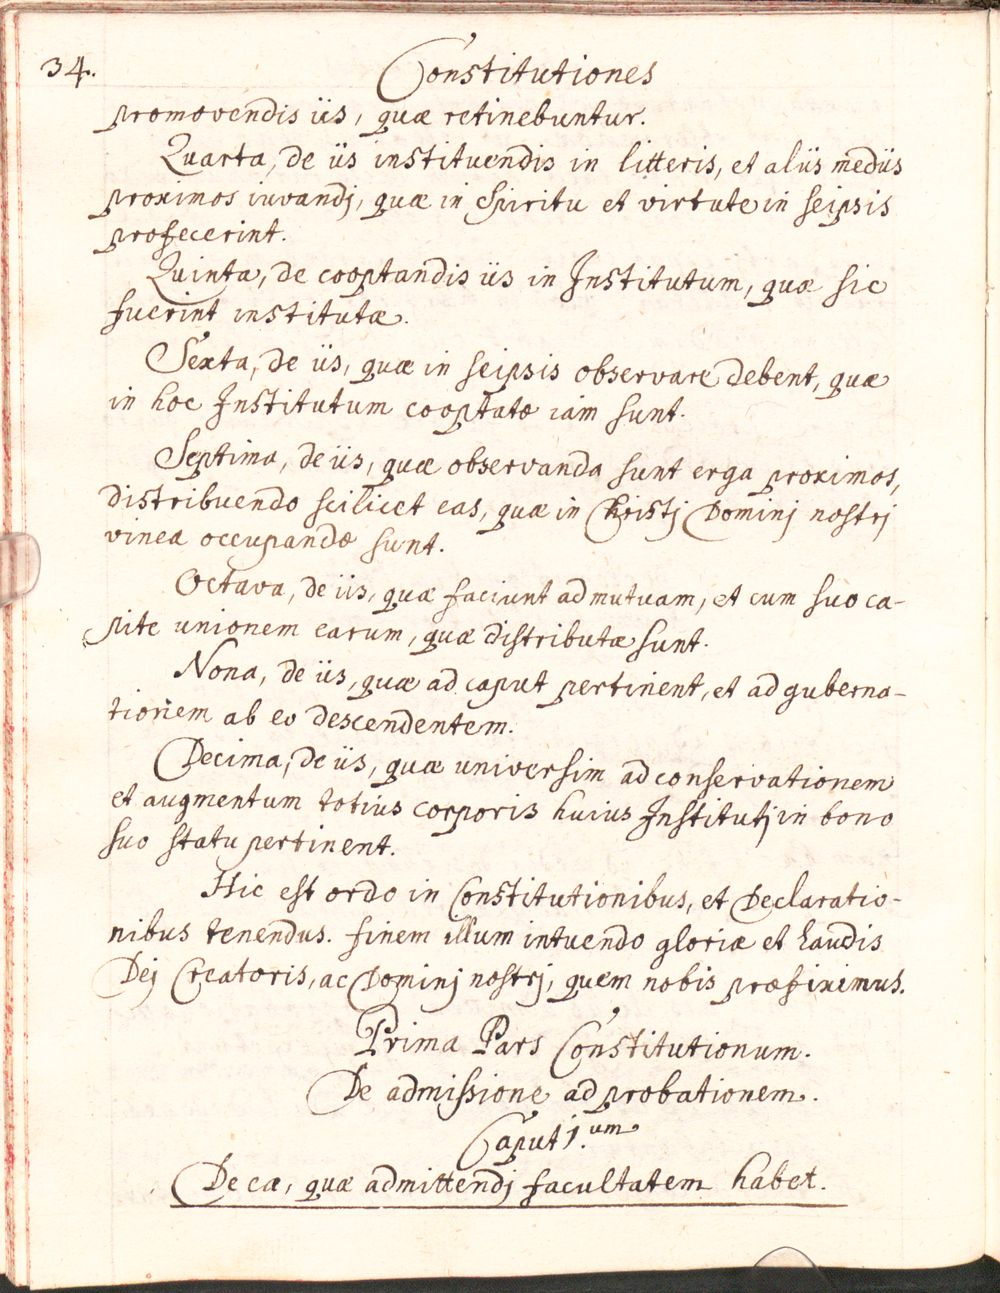 34.
Constitutiones
promovendis iis, quæ retinebuntur.
Quarta, de iis instituendis in litteris, et aliis mediis
proximos iuvandj, quæ in spiritu et virtute in seipsis
profecerint.
Quinta, de cooptandis iis in Institutum, quæ sic
fuerint institutæ.
Sexta, de iis, quæ in seipsis observare debent, quæ
in hoc Institutum cooptatæ iam sunt.
Septima, de iis, quæ observanda sunt erga proximos,
distribuendo scilicet eas, quæ in Christj Dominj nostrj
vinea occupandæ sunt.
Octava, de iis, quæ faciunt ad mutuam, et cum suo ca-
pite unionem earum, quæ distributæ sunt.
Nona, de iis, quæ ad caput pertinent, et ad guberna-
tionem ab eo descendentem.
Decima, de iis, quæ universim ad conservationem
et augmentum totius corporis huius Institutj in bono
suo statu pertinent.
Hic est ordo in Constitutionibus, et Declaratio-
nibus tenendus. finem illum intuendo gloriæ et Laudis
Dej Creatoris, ac Dominj nostrj, quem nobis præfiximus.
Prima Pars Constitutionum.
De admissione ad probationem.
Caput 1.um
De ea, quæ admittendj facultatem habet.